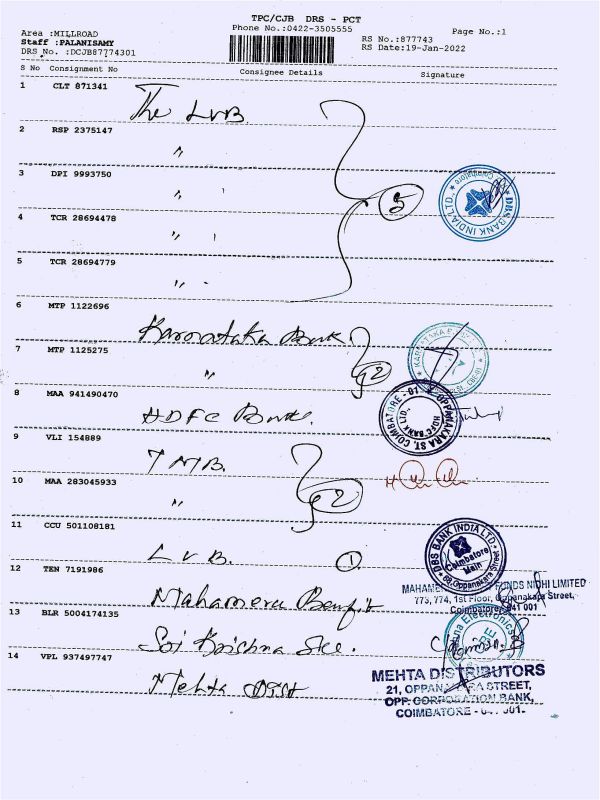 TPC/CJB DRS - PCT
Phone No.:0422-3505555
Page No.:1
Area :MILLROAD
Staff :PALANISAMY
DRS No. :DCJB87774301
RS No.:877743
RS Date:19-Jan-2022
S No Consignment No Consignee Details Signature
1 CLT 871341
The LVB
2 RSP 2375147
"
3 DPI 9993750
"
5
DBS BANK INDIA LTD.,
Coimbatore
4 TCR 28694478
"
5 TCR 28694779
"
6 MTP 1122696
Karnataka Bank
KARNATAKA
7 MTP 1125275
"
2
8 MAA 941490470
HDFC Bank.
OPPANAKARA ST. COIMBATORE - 01
HDFC BANK LTD.,
9 VLI 154889
TMB.
10 MAA 283045933
"
2
11 CCU 501108181
LVB.
1
DBS BANK INDIA LTD.
Coimbatore
Main
Oppanakara Street
12 TEN 7191986
Mahameru Benfit
FUNDS NIDHI LIMITED
773, 774, 1st Floor, Oppanakara Street,
Coimbatore 641 001
13 BLR 5004174135
Sri Krishna Ele.
Electronics
14 VPL 937497747
Mehta Dist
MEHTA DISTRIBUTORS
21, OPPANAKARA STREET,
OPP. CORPORATION BANK,
COIMBATORE - 641 001.